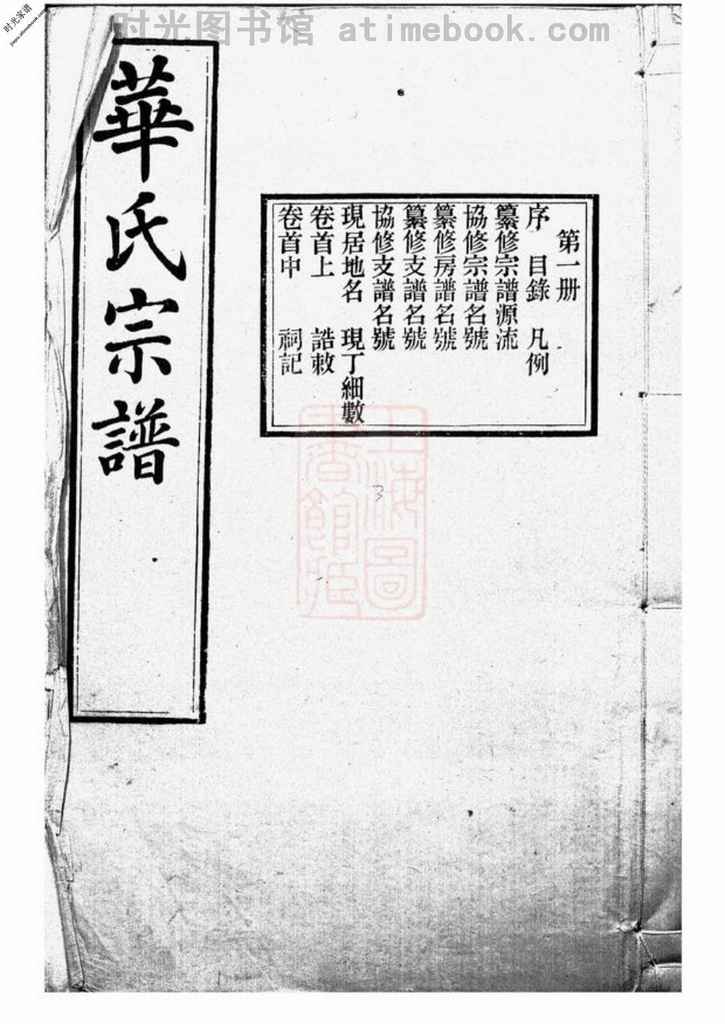 时光图书馆 atimebook.com
时光家谱
華氏宗譜
第一册
序 目錄 凡例
纂修宗譜源流
協修宗譜名號
纂修房譜名號
纂修支譜名號
協修支譜名號
現居地名 現丁細數
卷首上 誥敕
卷首中 祠記
上海圖書館藏